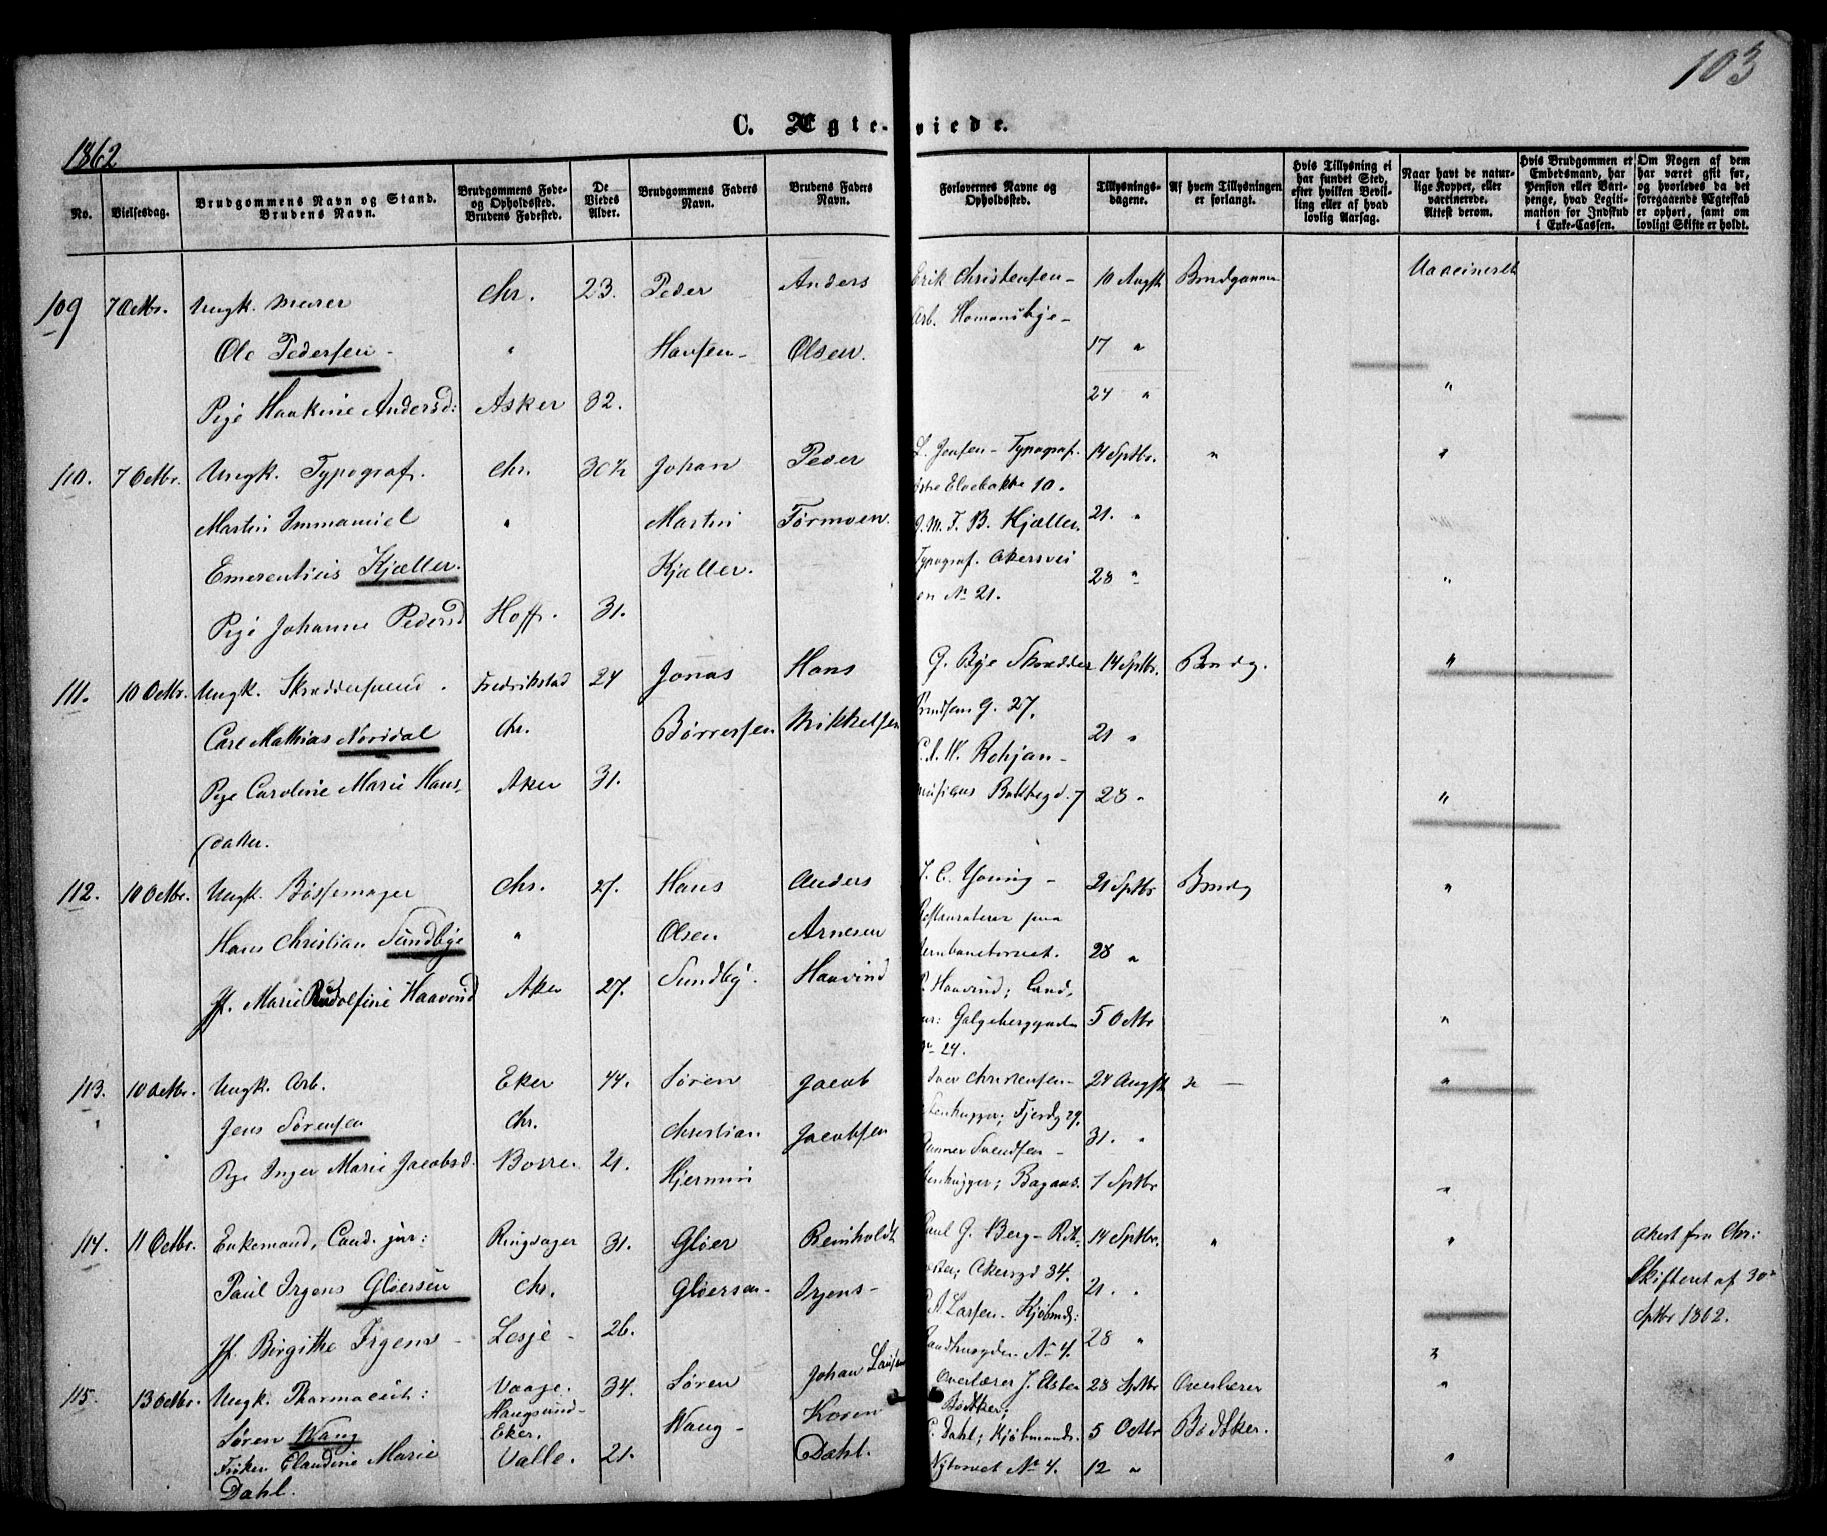 103
C. Ægteviede.
1862
No.
Vielsesdag.
Brudgommens Navn og Stand.
Brudens Navn.
Brudgommens Føde- og Opholdsted.
Brudens Fødested.
De Viedes Alder.
Brudgommens Faders Navn.
Brudens Faders Navn.
Forlovernes Navne og Opholdsted.
Tillysnings-dagene.
Af hvem Tillysningen er forlangt.
Hvis Tillysning ei har fundet Sted, efter hvilken Bevilling eller af hvad lovlig Aarsag.
Naar havt de naturlige Kopper, eller vaccinerede. Attest derom.
Hvis Brudgommen et Embedsmand, har Pension eller Vartpenge, hvad Legitimation for Indskud i Enke-Cassen.
Om Nogen af dem har været gift før, og hvorledes da det foregaaende Ægteskab er ophørt, samt om lovligt Skifte er holdt.
109 7 Octbr. Ungk. Murer Chr. 23. Peder Anders Erik Christensen - 10 Augst Brudgommen Vaccineret
Arb. Homansbye -
Ole Pedersen - " Hansen - Olsen. 17 "
Pige Haakine Andersd: Asker 32. 24 " "
110. 7 Octbr. Ungk. Typograf. Chr. 30½ Johan Peder L. Jensen - Typograf. 14 Sptbr. " "
Østre Elvebakke 10.
Martin Immanuel " Martin Tørmoen. J. M. F. B. Kjæller. 21. "
Emerentius Kjæller. Kjæller. Typograf. Akersvei 28 " "
en No 21.
Pige Johanne Pedersd Hoff. 31.
111. 10 Octbr. Ungk. Skræddersvend. Fredrikstad 24 Jonas Hans G. Bye Skrædder 14 Sptbr. Brudg. "
G. 27.
Carl Mathias Nordal Chr. Børresen Mikkelsen 21 "
Pige Caroline Marie Hans- Aker 31. 28 " "
datter.
112. 10 Octbr. Ungk. Bøssemager Chr. 27. Hans Anders J. C. Young - 21 Sptbr Brudg "
Restauratør paa
Hans Christian Sundbye " Olsen Arnesen Jernbanetorvet. 28 "
Jf. Marie Rudolfine Haavind Aker 27. Sundby. Haavind P. Haavind; Cand.
jur: Galgeberggaden 5 Octbr "
No 24.
113. 10 Octbr. Ungk. Arb. Eker 44. Søren Jacob Iver Christensen - 24 Augst " "
Stenhugger; Fjerdg 29.
Jens Sørensen Chr. Christian Jacobsen 31. "
Gunner Svendsen -
Pige Inger Marie Jacobsd. Borre 21. Hjermin Stenhugger; 7 Sptbr "
114. 11 Octbr. Enkemand, Cand. jur: Ringsager 31. Gløer Reinholdt Paul G. Berg - 14 Sptbr. " " Attest fra Chr:
Akersgd 34. Skifteret af 30te
Paul Irgens Gløersen Chr. Gløersen - Irgens - 21. "
Larsen - Kjøbmd: Sptbr 1862.
Jf. Birgithe Irgens - Lesje - 26. Raadhusgden No 4. 28 " "
115. 13 Octbr. Ungk. Pharmaceut: Vaage. 34. Søren Johan Overlærer J. 28 Sptbr Overlærer "
Haugsund- Bødtker;
Søren Wang Eker. Wang - Koren C. Dahl; Kjøbmand. 5 Octbr Bødtker.
Frøken Claudine Marie Valle. 21. Dahl. Nytorvet No 4. 12 " "
Dahl.